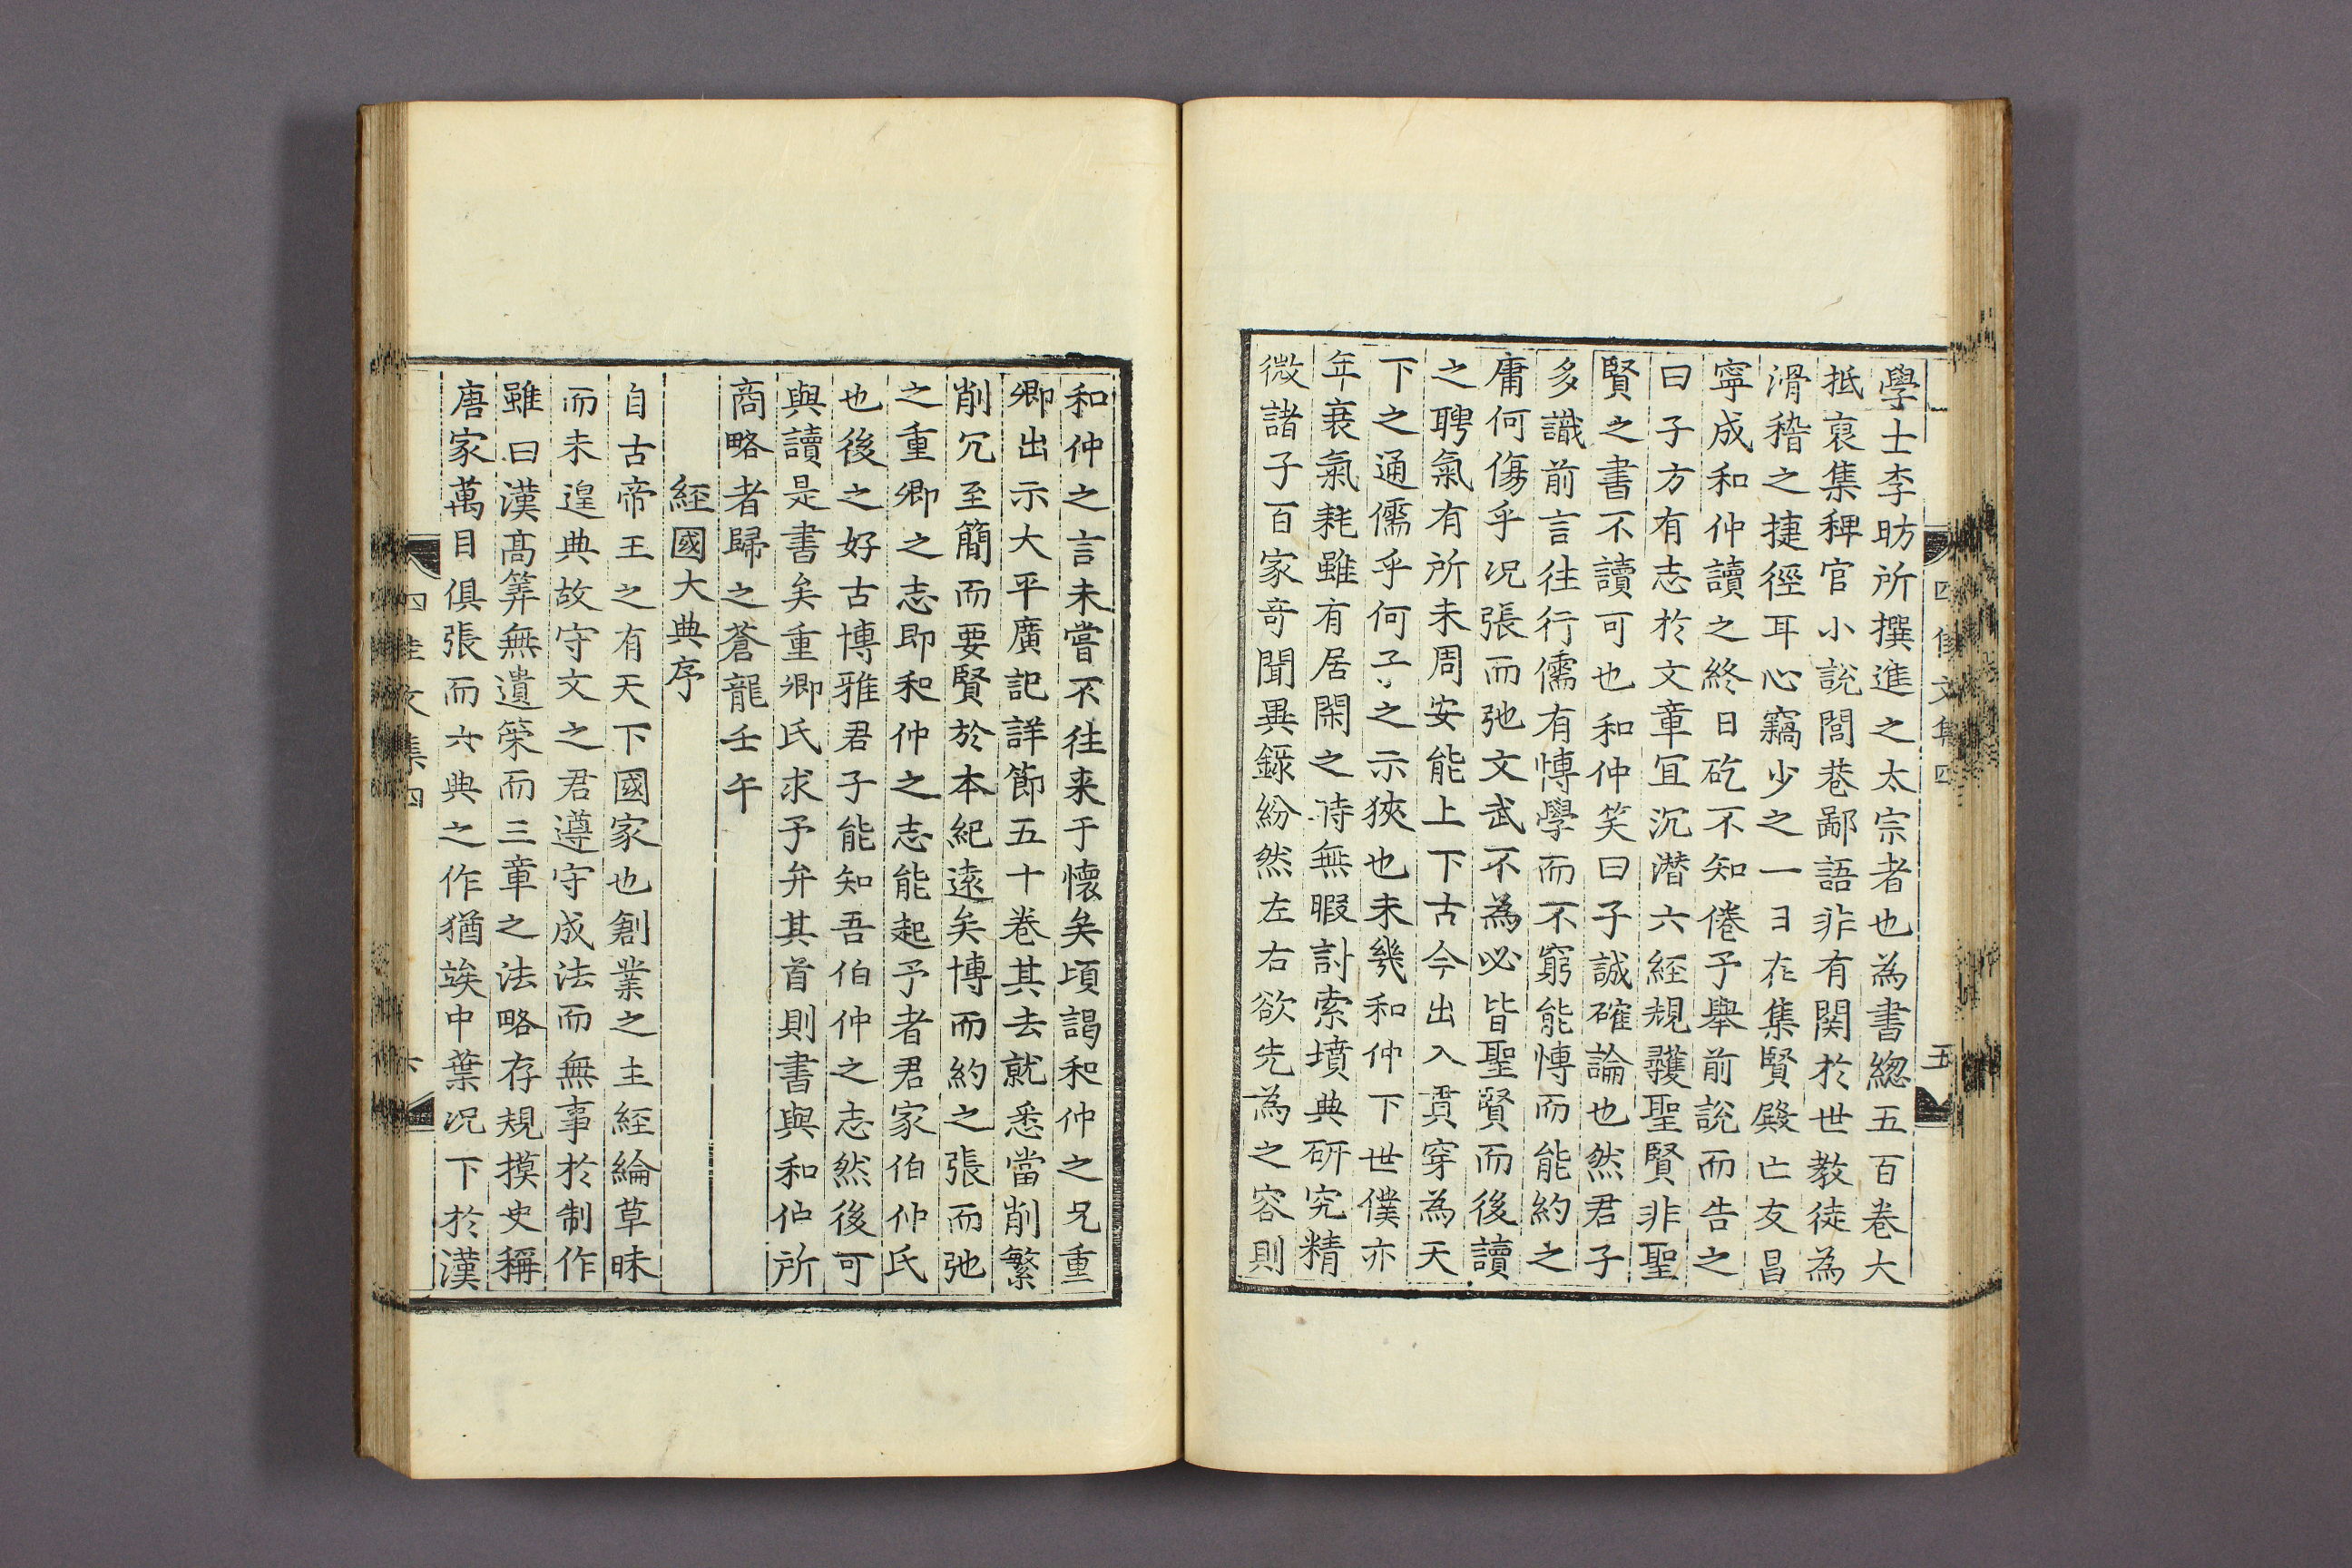 學士李昉所撰進之太宗者也為書緫五百卷大
抵裒集稗官小說閭巷鄙語非有関於世教徒為
滑稽之捷徑耳心竊少之一日在集賢殿亡友昌
寧成和仲讀之終日矻不知倦予舉前說而告之
曰子方有志於文章冝沉潜六經規頀聖賢非聖
賢之書不讀可也和仲笑曰子誠確論也然君子
多識前言往行儒有愽學而不窮能愽而能約之
庸何傷乎况張而弛文武不為必皆聖賢而後讀
之聘氣有所未周安能上下古今出入貫穿為天
下之通儒乎何子之示狹也未幾和仲下世僕亦
年衰氣耗雖有居閑之時無暇討索墳典硏究精
微諸子百家竒聞異錄紛然左右欲先為之容則
四佳文集四
五
和仲之言未嘗不往来于懷矣頃謁和仲之兄重
卿出示大平廣記詳節五十卷其去就悉當削繁
削冗至簡而要賢於本紀逺矣博而約之張而弛
之重卿之志即和仲之志能起予者君家伯仲氏
也後之好古博雅君子能知吾伯仲之志然後可
與讀是書矣重卿氏求予弁其首則書與和仲所
商略者歸之蒼龍壬午
經國大典序
自古帝王之有天下國家也創業之主經綸草昧
而未遑典故守文之君遵守成法而無事於制作
雖曰漢髙筭無遺策而三章之法略存規摸史稱
唐家萬目俱張而六典之作猶竢中葉况下於漢
四佳文集四
六